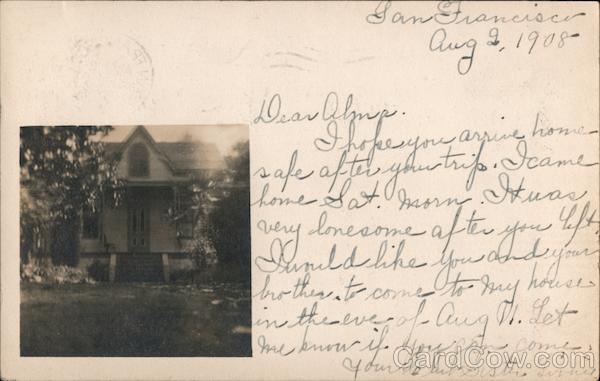 San Francisco
Aug 2, 1908
Dear Alma.
I hope you arrive home
safe after your trip. I came
home Sat. Morn. It was
very lonesome after you left.
I would like you and your
brother to come to my house
in the eve of Aug 11. Let
me know if you can come.
Your
CardCow.com